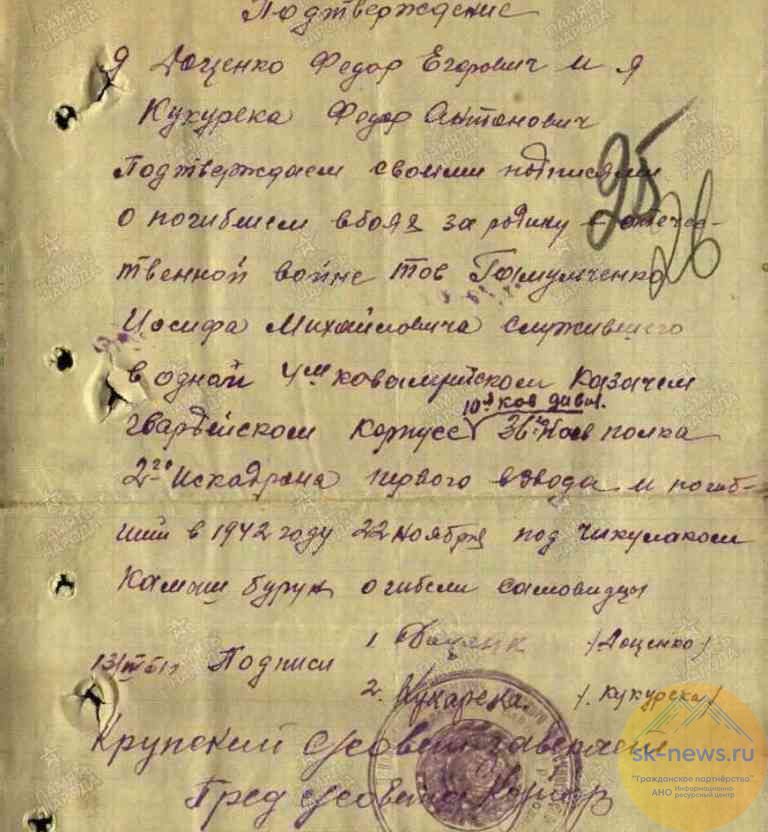 Подтверждение
Я Доценко Федор Егорович и я
Кукурека Федор Антонович
Подтверждаем своими подписями
о погибшем в боях за родину отечес-
твенной войне тов
Иосифа Михайловича служившего
в одной 4м кавалерийском Казачем
10й кав див.
гвардейском корпусе 36го полка
2го Искадрона первого взвода и погиб-
ший в 1942 году 22 ноября под Чикулаком
Камыш бурун о гибели самовидцы
Подписи 1 /Доценко/
2. Кукарека. /Кукурека/
Крупский с/совет заверяет
Пред с/совета
25
26
sk-news.ru
"Гражданское партнёрство"
АНО Информационно ресурсный центр